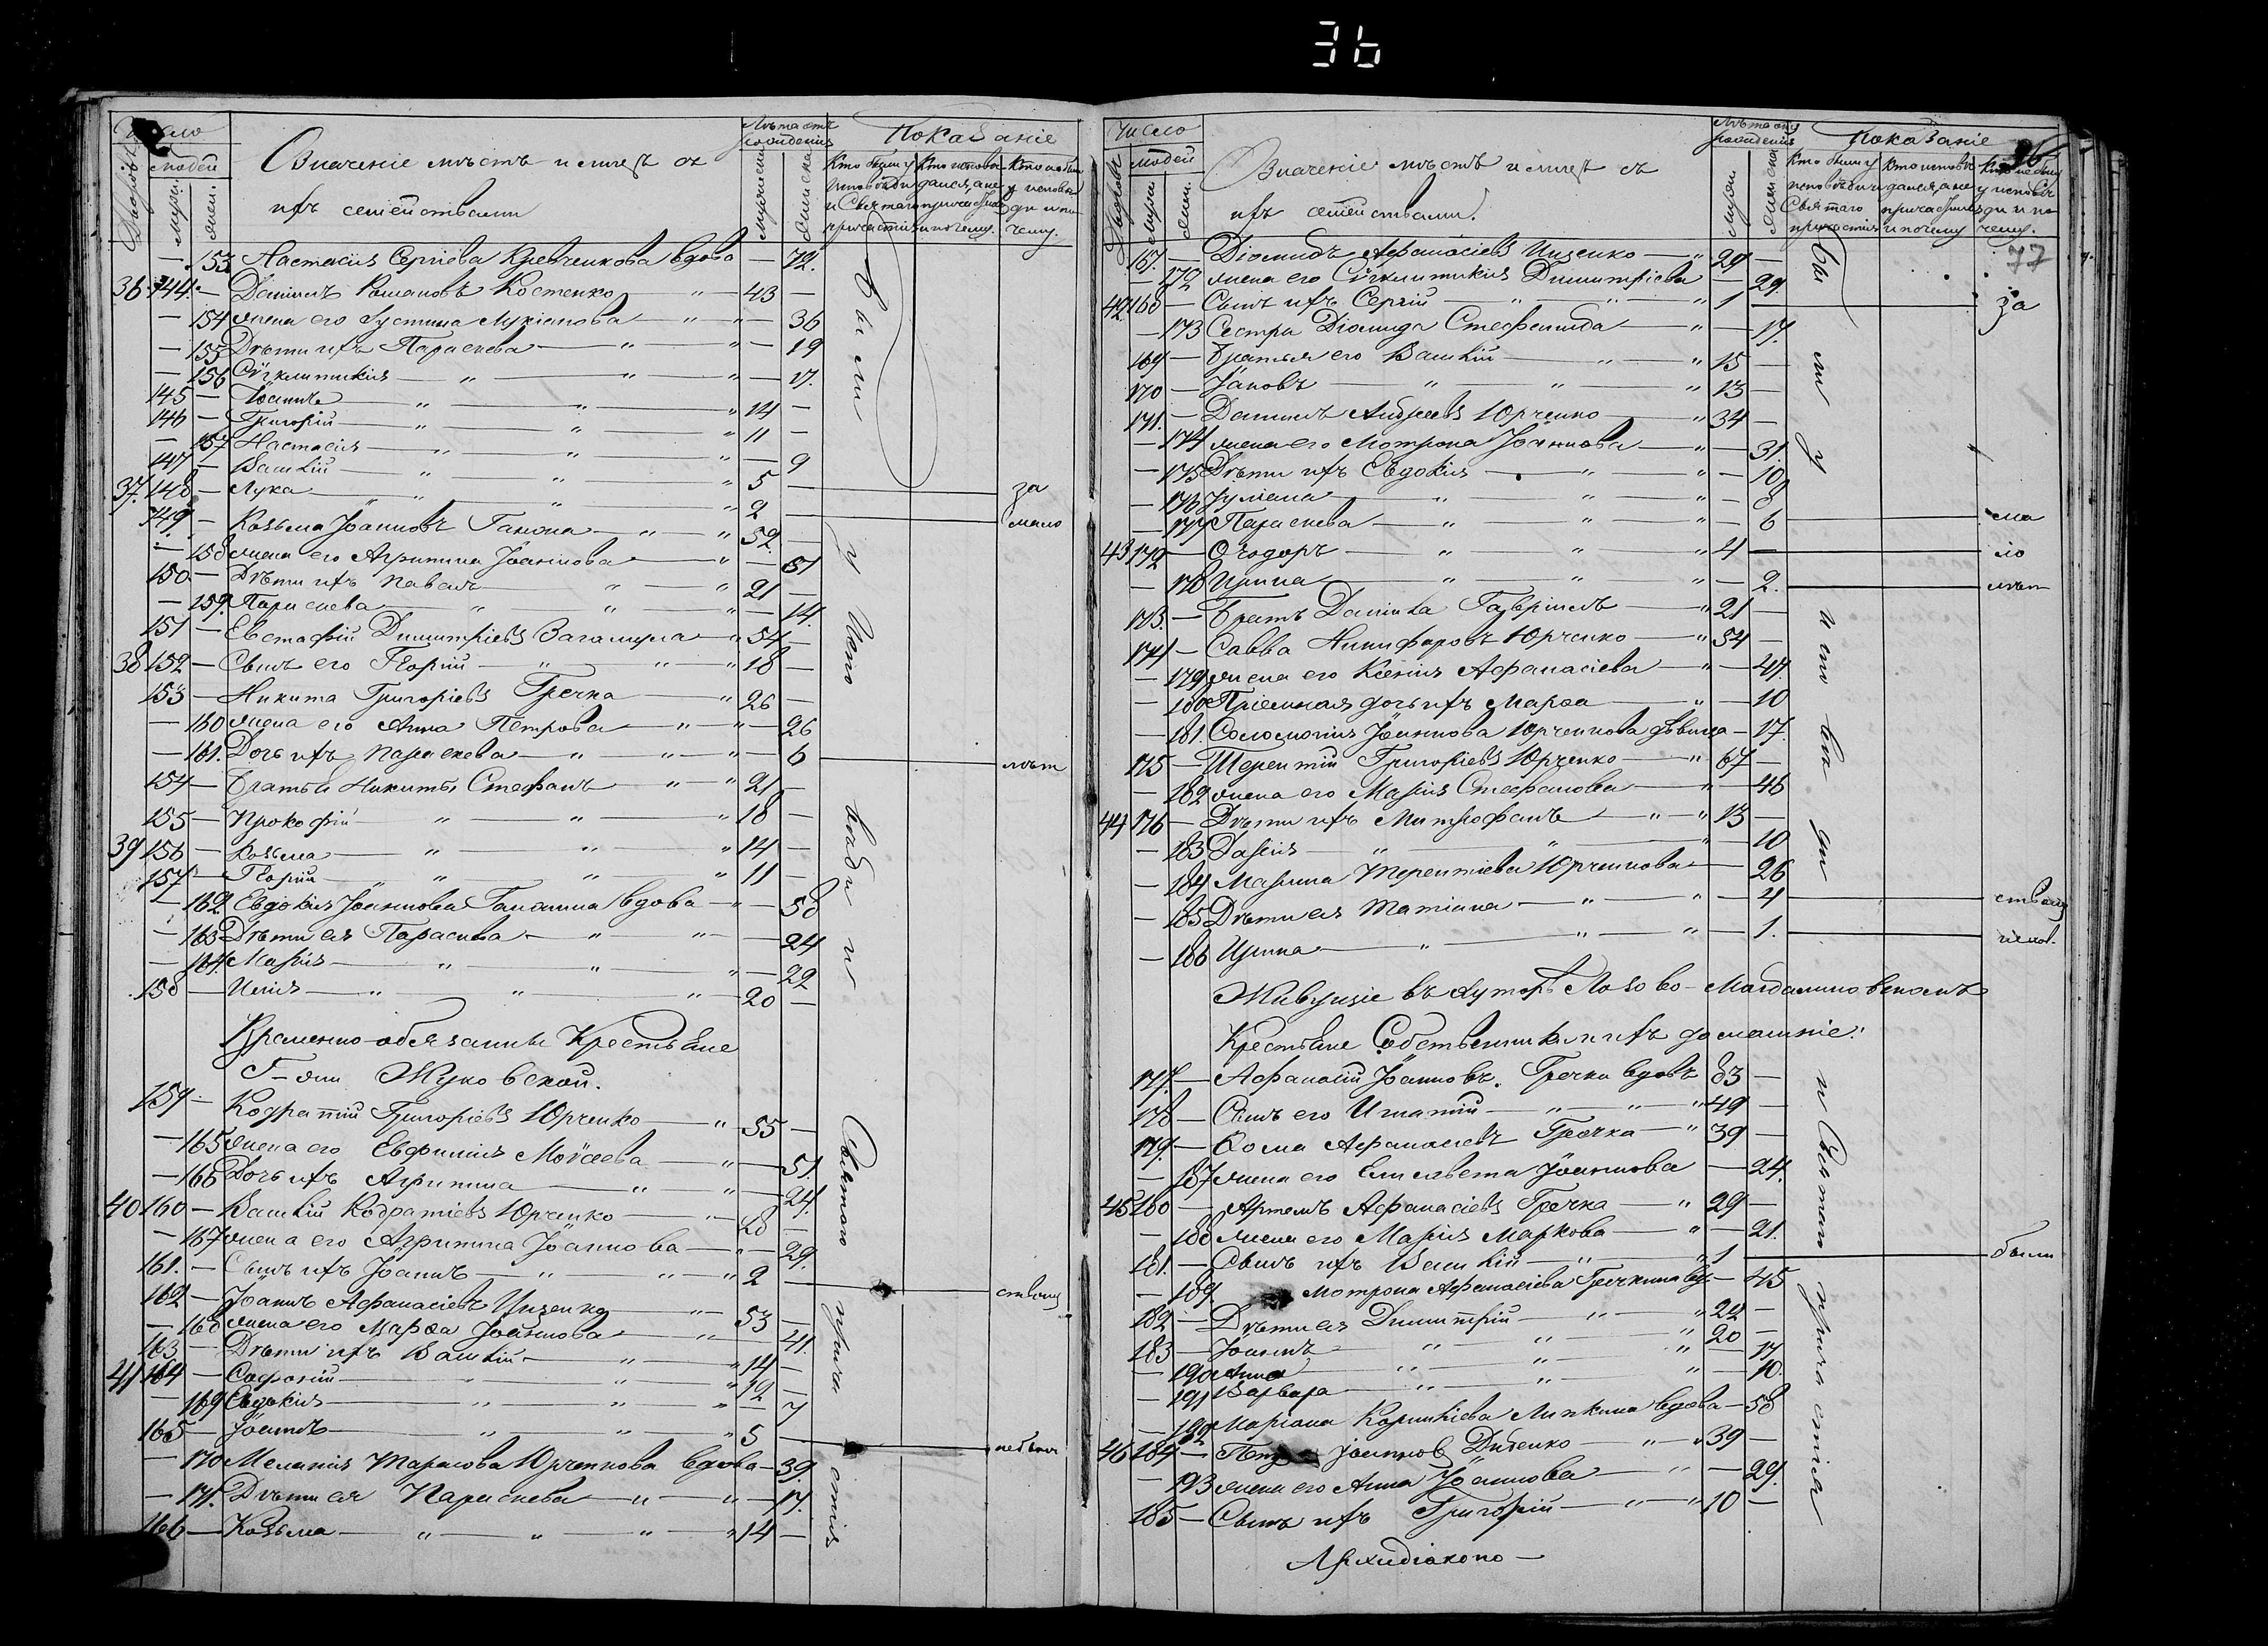 36
Число
Лѣта отъ рожденія
Показаніе
людей
Дворовъ
Мужи.
Жен.
Значеніе мѣстъ и лицъ съ
ихъ семействами
Мужеска
Женска
Кто былъ у исповѣди и Святаго причастія
Кто исповѣдался, а не причастился и почему.
Кто не былъ у исповѣди и почему.
— 153 Настасія Сергіева Кревченкова вдова — 72.
36 144 — Даніилъ Романовъ Костенко — " 43 —
— 154 жена его Іустина Лукіанова " " — 36
— 155 Дѣти ихъ Параскева — " — " — 19
— 156 Сѵгклитикія — " — " — " — 17.
145 — Іоаннъ — " — " — " 14 —
146 — Григорій — " — " — " 11 —
— 157 Настасія — " — " — " — 9
147 — Василій — " — " — " 5 — за
37. 148 — Лука — " — " — " 2 — мало
149. — Козьма Іоанновъ Ганжа — " — " 52 —
— 158 жена его Агрипина Іоаннова — " — 51
150 — Дѣти ихъ Павелъ — " — " 21 —
— 159. Параскева — " — " — " — 14.
151 — Евстафій Димитріевъ Загамула — " 54 —
38 152 — Сынъ его Георгій — " — " — " 18 —
153 — Никита Григоріевъ Гречка — " 26 —
— 160 жена его Анна Петрова — " — " — 26
— 161. Дочь ихъ Параскева — " — " — " — 6 — лѣт
154 — Братья Никиты Стефанъ — " — " 21 —
155 — Прокофій — " — " — " 18 —
39 156 — Козьма — " — " — " 14 —
157 — Георгій — " — " — " 11 —
— 162 Евдокія Іоаннова Ганжина вдова — " — 58
— 163 Дѣти ея Параскева — " — " — 24
— 164 Марія — " — " — " — 22
158 — Илія — " — " — " 20 —
Временно-обязанные Крестьяне
Г-жи Жуковской.
159 — Кодратій Григоріевъ Юрченко — " 55 —
— 165 жена его Евфимія Моѵсеева — " — 51.
— 166 Дочь ихъ Агрипина — " — " — 24.
40 160 — Василій Кодратіевъ Юрченко — " 28 —
— 167 жена его Агрипина Іоаннова — " — 29.
161. — Сынъ ихъ Іоаннъ — " — " — " 2 — ствомъ
162 — Іоаннъ Афанасіевъ Ищенко " 53 —
— 168 жена его Марѳа Іоаннова — " — 41.
163 — Дѣти ихъ Василій — " — " 14 —
41 164 — Софоній — " — " — " 12 —
— 169 Евдокія — " — " — " — 7
165 — Іоаннъ — " — " — " 5 — небыли
— 170 Меланія Тарасова Юрченкова вдова — 39.
— 171. Дѣти ея Параскева — " — " — 17.
166 — Козьма — " — " — " — " 14 —
Были у Исповѣди и Святаго причастія
Число
Лѣта отъ рожденія
Показаніе
36
77
людей
Дворовъ
Мужи
Жен.
Значеніе мѣстъ и лицъ съ
ихъ семействами.
Мужес.
Женска
Кто былъ у исповѣди и Святаго причастія
Кто исповѣдался, а не причастился и почему
Кто не былъ у исповѣди и почему.
167. — Діомидъ Афанасіевъ Ищенко — " 29 —
— 172 жена его Сѵгклитикія Димитріева — 29.
42 168 — Сынъ ихъ Сергій — " — " — " 1 — за
— 173 Сестра Діомида Стефанида — " — 17.
169 — Братья его Василій — " — " 15 —
170 — Іаковъ — " — " — " 13 —
171. — Даніилъ Андреевъ Юрченко — " 34 —
— 174 жена его Мотрона Іоаннова — " — 31.
— 175 Дѣти ихъ Евдокія — " — " — 10
— 176 Іуліана — " — " — " — 8
— 177 Параскева — " — " — " — 6 — ма
43 172 — Ѳеодоръ — " — " — " 4 — ло
— 178 Ирина — " — " — " — 2. — лѣт
173. — Братъ Даніила Гавріилъ — " 21 —
174 — Савва Никифоровъ Юрченко — " 54 —
— 179 жена его Ксенія Афанасіева — " — 47.
— 180 Пріемная дочь ихъ Марѳа — " — 10
— 181. Соломонія Іоаннова Юрченкова дѣвица — 17.
175 — Терентій Григоріевъ Юрченко — " 67 —
— 182 жена его Марія Стефанова — " — 46
44 176 — Дѣти ихъ Митрофанъ — " — " 13 —
— 183 Дарія — " — " — 10
— 184 Марина Терентіева Юрченкова — 26
— 185 Дѣти ея Татіана — " — " — 4 — ствомъ
— 186 Ирина — " — " — " — 1.
Живущіе въ хуторѣ Лозово-Магдалиновскомъ
Крестьяне Собственники и ихъ домашніе:
177. — Афанасій Іоанновъ Гречка вдовъ 83 —
178 — Сынъ его Игнатій — " — " — " 49 —
179. — Ѳома Афанасіевъ Гречка — " 39 —
— 187 жена его Елисавета Іоаннова — 24.
45 180 — Артемъ Афанасіевъ Гречка — " 29 —
— 188 жена его Марія Маркова — " — 21.
181. — Сынъ ихъ Василій — " — " 1 — были
— 189. Мотрона Афанасіева Гречкина вд. — 45
182 — Дѣти ея Димитрій — " — " 22 —
183 — Іоаннъ — " — " — " 20 —
— 190 Анна — " — " — " — 17
— 191 Варвара — " — " — " — 10.
— 192 Маріана Корниліева Липкина вдова — 58
46 184 — Петръ Іоанновъ Диденко — " — " 39 —
— 193 жена его Анна Іоаннова — " — 29.
185 — Сынъ ихъ Григорій — " — " 10 —
Архидіаконо —
были у исповѣди и Святаго причастія